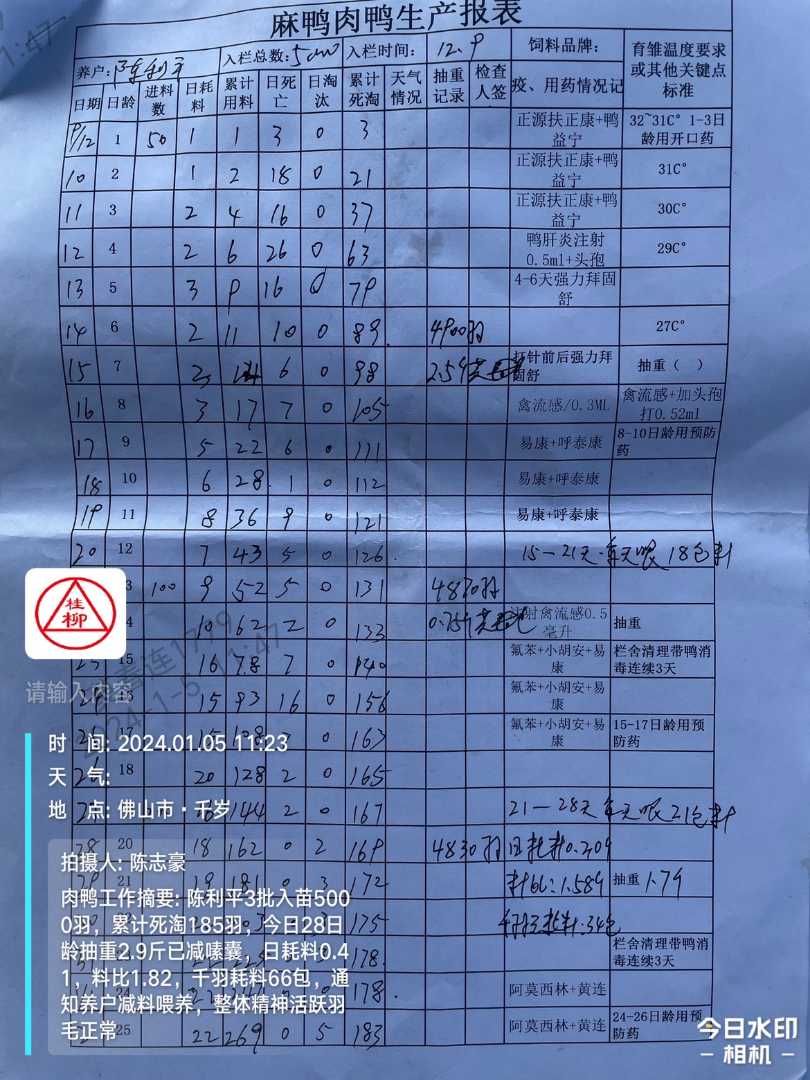 麻鸭肉鸭生产报表
养户: 陈利平 入栏总数: 5000 入栏时间: 12.9 饲料品牌: 育雏温度要求或其他关键点标准
日期 日龄 进料数 日耗料 累计用料 日死亡 日淘汰 累计死淘 天气情况 抽重记录 检查人签 疫、用药情况记
9/12 1 50 1 1 3 0 3 正源扶正康+鸭益宁 32~31C° 1-3日龄用开口药
10 2 1 2 18 0 21 正源扶正康+鸭益宁 31C°
11 3 2 4 16 0 37 正源扶正康+鸭益宁 30C°
12 4 2 6 26 0 63 鸭肝炎注射0.5ml+头孢 29C°
13 5 3 9 16 0 79 4-6天强力拜固舒
14 6 2 11 10 0 89 4900羽 27C°
15 7 6 0 98 打针前后强力拜固舒 抽重（ ）
16 8 3 17 7 0 105 禽流感/0.3ML 禽流感+加头孢打0.52ml
17 9 5 22 6 0 111 易康+呼泰康 8-10日龄用预防药
18 10 6 28 1 0 112 易康+呼泰康
19 11 8 36 9 0 121 易康+呼泰康
20 12 7 43 5 0 126 15—21天 每天喂18包料
3 100 9 52 5 0 131 4870羽
4 10 62 2 0 133 注射禽流感0.5毫升 抽重
15 16 78 7 0 140 氟苯+小胡安+易康 栏舍清理带鸭消毒连续3天
15 93 16 0 156 氟苯+小胡安+易康
17 15 108 0 163 氟苯+小胡安+易康 15-17日龄用预防药
18 20 128 2 0 165
144 2 0 167 21—28天 每天喂21包料
28 20 18 162 0 2 169 4830羽 日耗料0.209
21 19 181 0 3 172 料比:1.589 抽重 1.79
3 175 千羽耗料:34包
178 栏舍清理带鸭消毒连续3天
24 0 178 阿莫西林+黄连
25 22 269 0 5 183 阿莫西林+黄连 24-26日龄用预防药
桂柳
请输入内容
时 间: 2024.01.05 11:23
天 气:
地 点: 佛山市·千岁
拍摄人: 陈志豪
肉鸭工作摘要: 陈利平3批入苗500
0羽，累计死淘185羽，今日28日
龄抽重2.9斤已减嗉囊，日耗料0.4
1，料比1.82，千羽耗料66包，通
知养户减料喂养，整体精神活跃羽
毛正常
今日水印
相机